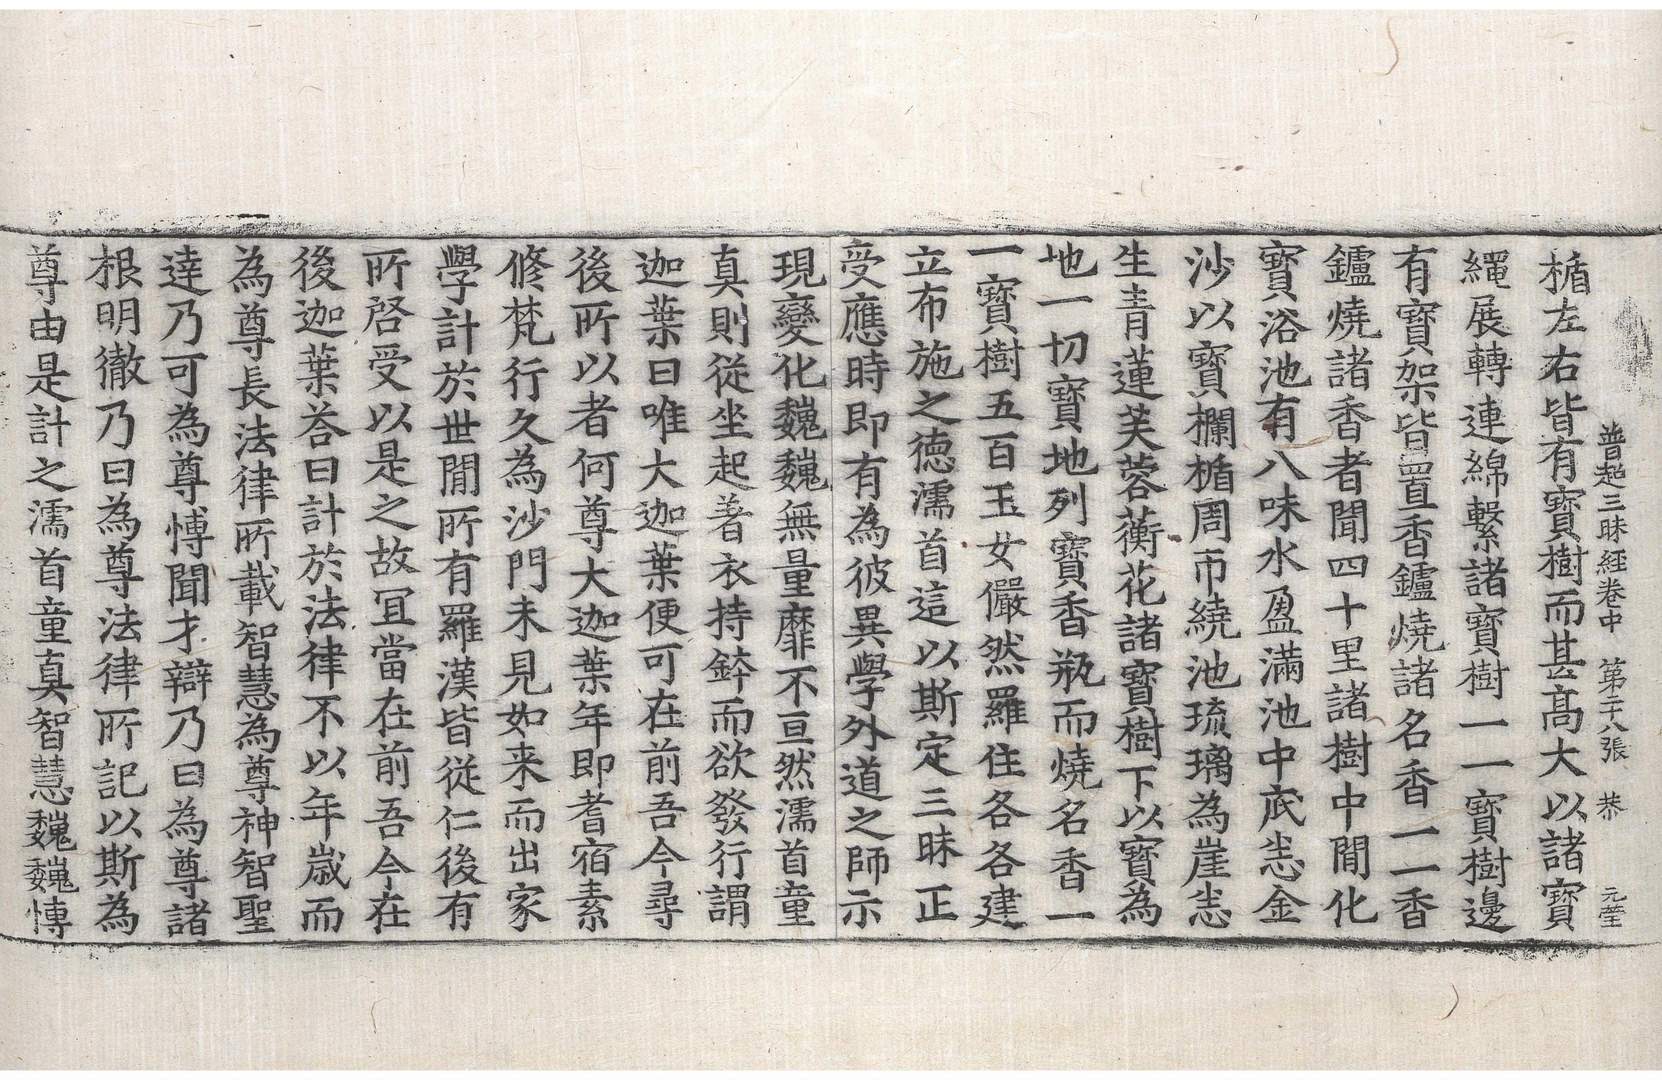 普超三昧経卷中 第二十八張 恭 元瑩
楯左右皆有寶樹而甚髙大以諸寶
繩展轉連綿繫諸寶樹一一寶樹邊
有寶架皆置香鑪燒諸名香一一香
鑪燒諸香者聞四十里諸樹中閒化
寶浴池有八味水盈滿池中底悉金
沙以寶欄楯周帀繞池琉璃為崖悉
生青蓮芙蓉蘅花諸寶樹下以寶為
地一切寶地列寶香瓶而燒名香一
一寶樹五百玉女儼然羅住各各建
立布施之德濡首這以斯定三昧正
受應時即有為彼異學外道之師示
現變化巍巍無量靡不亘然濡首童
真則從坐起著衣持鉢而欲發行謂
迦葉曰唯大迦葉便可在前吾今尋
後所以者何尊大迦葉年即耆宿素
修梵行久為沙門未見如来而出家
學計於世閒所有羅漢皆從仁後有
所啓受以是之故冝當在前吾今在
後迦葉荅曰計於法律不以年歲而
為尊長法律所載智慧為尊神智聖
達乃可為尊愽聞才辯乃曰為尊諸
根明徹乃曰為尊法律所記以斯為
尊由是計之濡首童真智慧巍巍愽